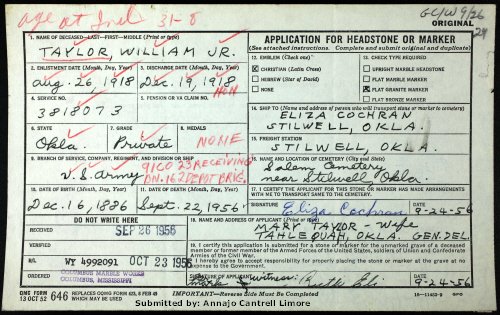 age at Inl 31-8
GC/W 9/26
ORIGINAL
24
1. NAME OF DECEASED—LAST—FIRST—MIDDLE (Print or type)
TAYLOR, WILLIAM JR.
APPLICATION FOR HEADSTONE OR MARKER
(See attached instructions. Complete and submit original and duplicate)
2. ENLISTMENT DATE (Month, Day, Year)
3. DISCHARGE DATE (Month, Day, Year)
Aug. 26, 1918
Dec. 19, 1918
HON
12. EMBLEM (Check one)
CHRISTIAN (Latin Cross)
HEBREW (Star of David)
NONE
13. CHECK TYPE REQUIRED
UPRIGHT MARBLE HEADSTONE
FLAT MARBLE MARKER
FLAT GRANITE MARKER
FLAT BRONZE MARKER
4. SERVICE NO.
PENSION OR VA CLAIM NO.
3818073
14. SHIP TO (Name and address of person who will transport stone or marker to cemetery)
ELIZA COCHRAN
STILWELL, OKLA.
6. STATE
7. GRADE
8. MEDALS
Okla
Private
NONE
15. FREIGHT STATION
STILWELL, OKLA.
9. BRANCH OF SERVICE, COMPANY, REGIMENT, AND DIVISION OR SHIP
U.S. Army
23 RECEIVING
162 DEPOT BRIG.
16. NAME AND LOCATION OF CEMETERY (City and State)
Salem Cemetery
near Stilwell Okla.
17. I CERTIFY THE APPLICANT FOR THIS STONE OR MARKER HAS MADE ARRANGEMENTS WITH ME TO TRANSPORT SAME TO THE CEMETERY.
10. DATE OF BIRTH (Month, Day, Year)
11. DATE OF DEATH (Month, Day, Year)
Dec. 16, 1896
Sept. 22, 1956
SIGNATURE
Eliza Cochran
DATE
9-24-56
DO NOT WRITE HERE
18. NAME AND ADDRESS OF APPLICANT (Print or type)
MARY TAYLOR - Wife
TAHLEQUAH, OKLA. GEN. DEL.
RECEIVED
SEP 26 1956
19. I certify this application is submitted for a stone or marker for the unmarked grave of a deceased member or former member of the Armed Forces of the United States, soldiers of Union and Confederate Armies of the Civil War.
I hereby agree to accept responsibility for properly placing the stone or marker at the grave at no expense to the Government.
W.I. WY 4992091 OCT 23 1956
COLUMBUS MARBLE WORKS
COLUMBUS, MISSISSIPPI
mark
witness:
9-24-56
QMC FORM
13 OCT 52 046
REPLACES QMC FORM 623, 8 FEB 49
WHICH MAY BE USED
IMPORTANT—Reverse Side Must Be Completed
16—11452-9 GPO
Submitted by: Annajo Cantrell Limore